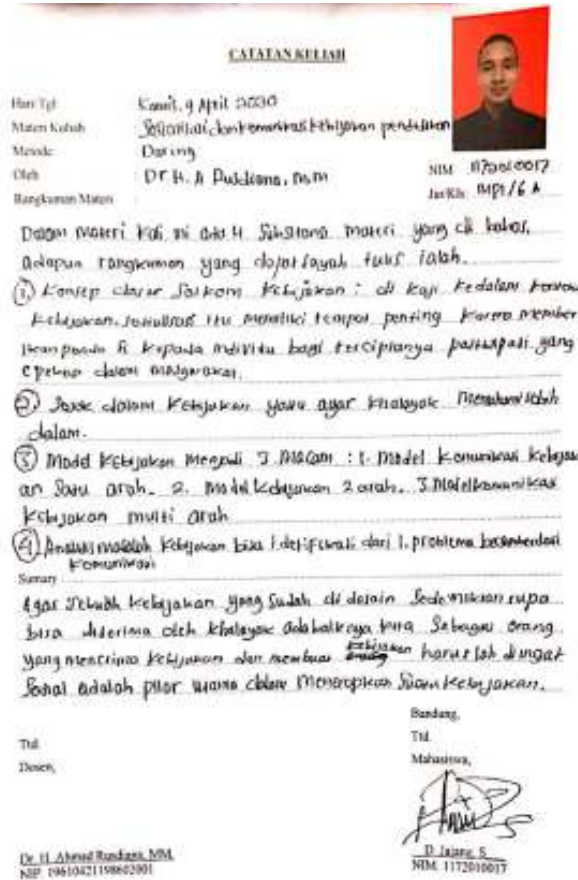 CATATAN KULIAH
Hari/Tgl Kamis, 9 April 2020
Materi Kuliah Sosialisasi dan komunikasi kebijakan pendidikan
Metode Daring
Oleh Dr H. A Rusdiana, M.M
NIM 1172010017
Rangkuman Materi
Jur/Kls MPI/6 A
Dalam materi kali ini ada 4 Substansi materi yang di bahas.
adapun rangkuman yang dapat sayah tulis ialah.
① Konsep dasar Soskom Kebijakan : di kaji kedalam konteks
kebijakan. sosialisasi itu memiliki tempat penting karna member
ikan kepada individu bagi terciptanya partisipasi yang
dalam masyarakat.
② dalam kebijakan yaitu agar khalayak memahami lebih
dalam.
③ Model kebijakan menjadi 3 Macam : 1. Model komunikasi kebijak
an Satu arah. 2. Model kebijakan 2 arah. 3. Model komunikasi
kebijakan multi arah
④ Analisis masalah kebijakan bisa dari 1. problema
komunikasi
Sumary
Agar Sebuah kebijakan yang sudah di desain Sedemikian rupa
bisa diterima oleh khalayak ada baiknya kita Sebagai orang
yang menerima kebijakan dan membuat kebijakan harus lah diingat
Sosial adalah pilar utama dalam menerapkan Suatu kebijakan.
Bandung,
Ttd.
Ttd
Dosen,
Mahasiswa,
Dr. H. Ahmad Rusdiana, MM.
NIP. 19610421198602001
D. Jajang. S
NIM. 1172010017